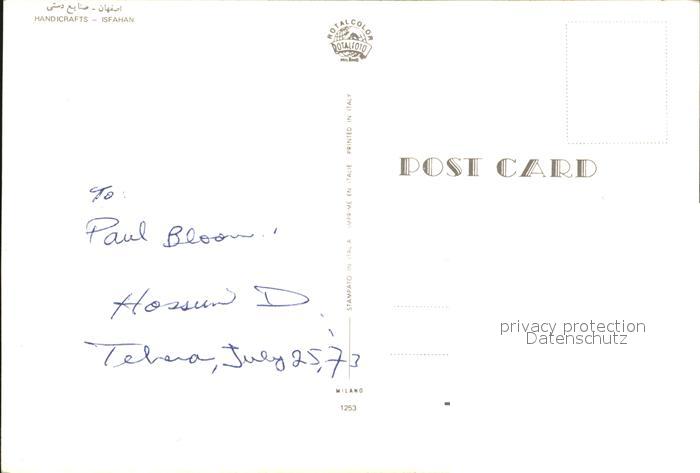 اصفهان - صنایع دستی
HANDICRAFTS – ISFAHAN
ROTALCOLOR
ROTALFOTO
MILANO
STAMPATO IN ITALIA IMPRIMÉ EN ITALIE PRINTED IN ITALY
POST CARD
To:
Paul Bloom
Hossein D.
Tehran, July 25, 73
privacy protection
Datenschutz
MILANO
1253